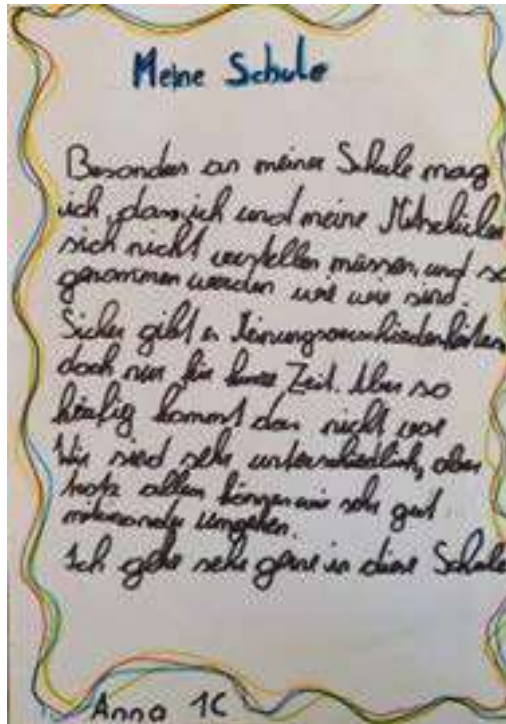 Meine Schule
Besonders an meiner Schule mag
ich, dass ich und meine Mitschüler
sich nicht verstellen müssen, und so
genommen werden wie wir sind.
Sicher gibt es Meinungsverschiedenheiten,
doch nur für kurze Zeit. Aber so
häufig kommt das nicht vor
Wir sind sehr unterschiedlich, aber
trotz allem können wir sehr gut
miteinander umgehen.
Ich gehe sehr gerne in diese Schule
Anna 1C